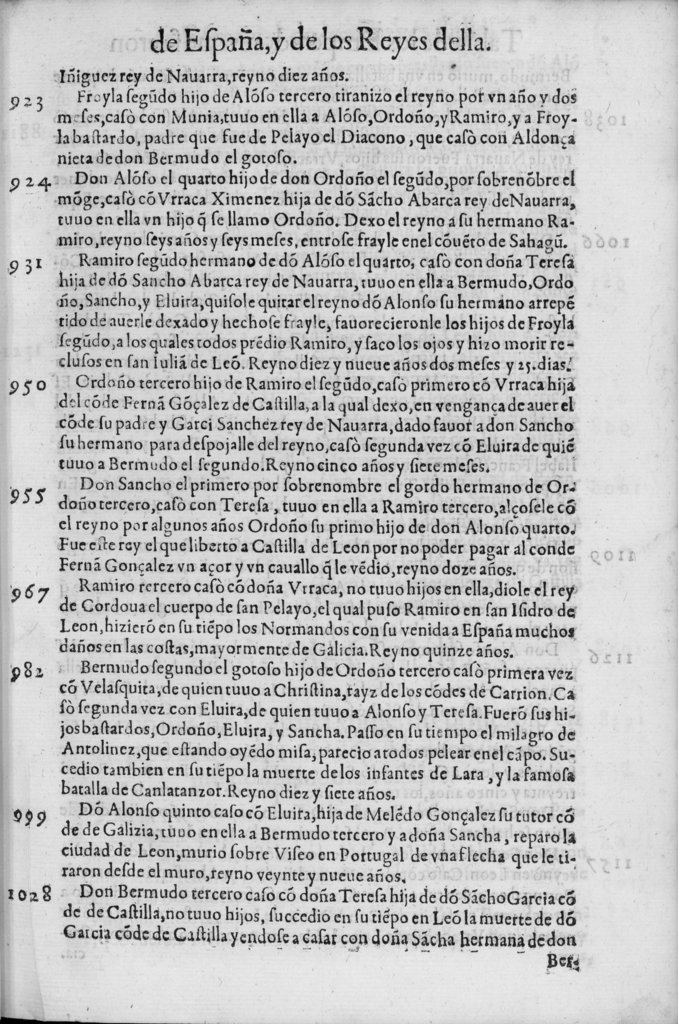 de España, y de los Reyes della.
Iñiguez rey de Nauarra, reyno diez años.
923 Froyla segũdo hijo de Alõso tercero tiranizo el reyno por vn año y dos
meses, casò con Munia, tuuo en ella a Alõso, Ordoño, y Ramiro, y a Froy-
la bastardo, padre que fue de Pelayo el Diacono, que casò con Aldonça
nieta de don Bermudo el gotoso.
924 Don Alõso el quarto hijo de don Ordoño el segũdo, por sobrenõbre el
mõge, casò cõ Vrraca Ximenez hija de dõ Sãcho Abarca rey de Nauarra,
tuuo en ella vn hijo q̃ se llamo Ordoño. Dexo el reyno a su hermano Ra-
miro, reyno seys años y seys meses, entrose frayle enel cõuẽto de Sahagũ.
931 Ramiro segũdo hermano de dõ Alõso el quarto, casò con doña Teresa
hija de dõ Sancho Abarca rey de Nauarra, tuuo en ella a Bermudo, Ordo
ño, Sancho, y Eluira, quisole quitar el reyno dõ Alonso su hermano arrepẽ
tido de auerle dexado y hechose frayle, fauorecieronle los hijos de Froyla
segũdo, a los quales todos prẽdio Ramiro, y saco los ojos y hizo morir re-
clusos en san Iuliã de Leõ. Reyno diez y nueue años dos meses y 25. dias.
950 Ordoño tercero hijo de Ramiro el segũdo, casò primero cõ Vrraca hija
del cõde Fernã Gõçalez de Castilla, a la qual dexo, en vengança de auer el
cõde su padre y Garci Sanchez rey de Nauarra, dado fauor a don Sancho
su hermano para despojalle del reyno, casò segunda vez cõ Eluira de quiẽ
tuuo a Bermudo el segundo. Reyno cinco años y siete meses.
955 Don Sancho el primero por sobrenombre el gordo hermano de Or-
doño tercero, casò con Teresa, tuuo en ella a Ramiro tercero, alçosele cõ
el reyno por algunos años Ordoño su primo hijo de don Alonso quarto.
Fue este rey el que liberto a Castilla de Leon por no poder pagar al conde
Fernã Gonçalez vn açor y vn cauallo q̃ le vẽdio, reyno doze años.
967 Ramiro rercero casò cõ doña Vrraca, no tuuo hijos en ella, diole el rey
de Cordoua el cuerpo de san Pelayo, el qual puso Ramiro en san Isidro de
Leon, hizierõ en su tiẽpo los Normandos con su venida a España muchos
daños en las costas, mayormente de Galicia. Reyno quinze años.
982 Bermudo segundo el gotoso hijo de Ordoño tercero casò primera vez
cõ Velasquita, de quien tuuo a Christina, rayz de los cõdes de Carrion. Ca
sò segunda vez con Eluira, de quien tuuo a Alonso y Teresa. Fuerõ sus hi-
jos bastardos, Ordoño, Eluira, y Sancha. Passo en su tiempo el milagro de
Antolinez, que estando oyẽdo misa, parecio a todos pelear enel cãpo. Su-
cedio tambien en su tiẽpo la muerte delos infantes de Lara, y la famosa
batalla de Canlatanzor. Reyno diez y siete años.
999 Dõ Alonso quinto caso cõ Eluira, hija de Melẽdo Gonçalez su tutor cõ
de de Galizia, tuuo en ella a Bermudo tercero y a doña Sancha, reparo la
ciudad de Leon, murio sobre Viseo en Portugal de vna flecha que le ti-
raron desde el muro, reyno veynte y nueue años.
1028 Don Bermudo tercero caso cõ doña Teresa hija de dõ Sãcho Garcia cõ
de de Castilla, no tuuo hijos, succedio en su tiẽpo en Leõ la muerte de dõ
Garcia cõde de Castilla yendose a casar con doña Sãcha hermana de don
Ber-